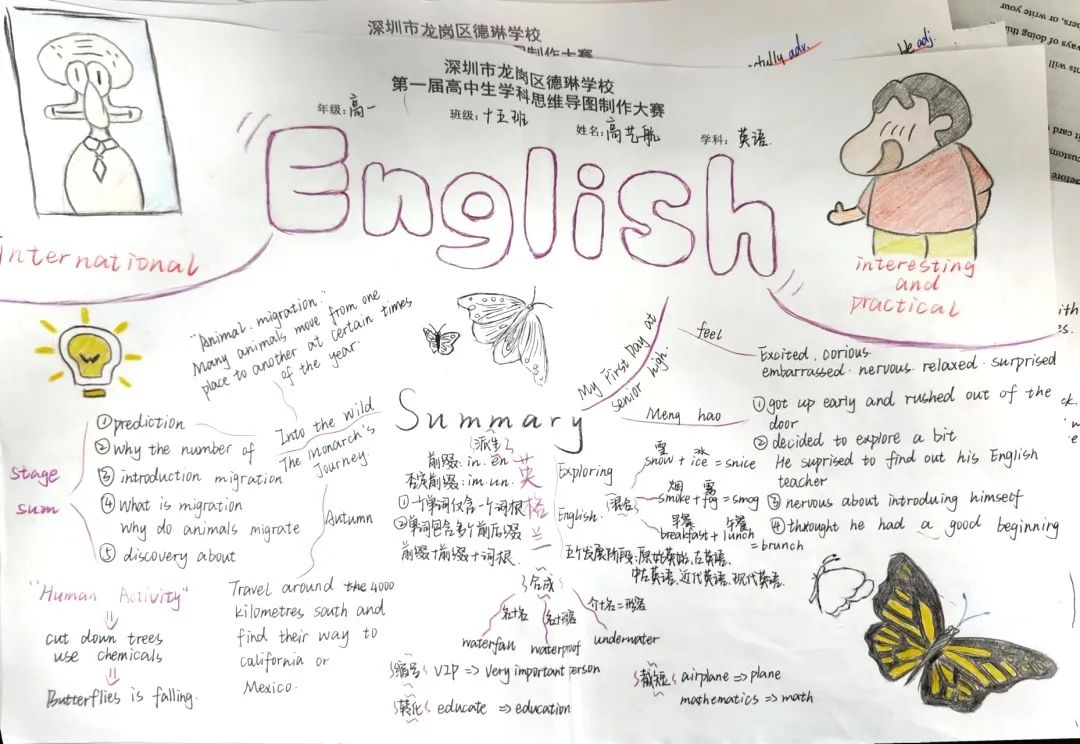 深圳市龙岗区德琳学校
制作大赛
adv.
We adj.
深圳市龙岗区德琳学校
第一届高中生学科思维导图制作大赛
年级:高一
班级:十五班
姓名:高艺航
学科:英语
English
International
interesting
and
practical
"Animal migration:"
Many animals move from one
place to another at certain times
of the year.
My First Day at
senior high.
feel
Excited. corious.
embarrassed. nervous. relaxed. surprised
Meng hao
①got up early and rushed out of the
door
②decided to explore a bit
He suprised to find out his English
teacher
③nervous about introduing himself
④thxought he had a good beginning
Summary
stage
sum
①prediction
②why the number of
③introduction migration
④What is migration
why do animals migrate
⑤discovery about
Into the Wild
The monarch's
Journey.
Autumn
Travel around the 4000
kilometres south and
find their way to
california or
Mexico.
"Human Activity"
cut down trees
use chemicals
Butterflies is falling.
英格兰
派生
前缀:in.en
否定前缀:im.un.
①一个单词仅含一个词根
②单词包含多个前后缀
前缀+前缀+词根.
Exploring
English.
混合
雪 冰
snow + ice = snice
烟 雾
smoke + fog = smog
早餐 午餐
breakfast + lunch
= brunch
五个发展阶段:原始英语.古英语.
中古英语.近代英语.现代英语.
合成
名+名
waterfall
名+形容
waterproof
介+名=形容
underwater
缩号 VIP => very important person
转化 educate => education
截短 airplane => plane
mathematics => math